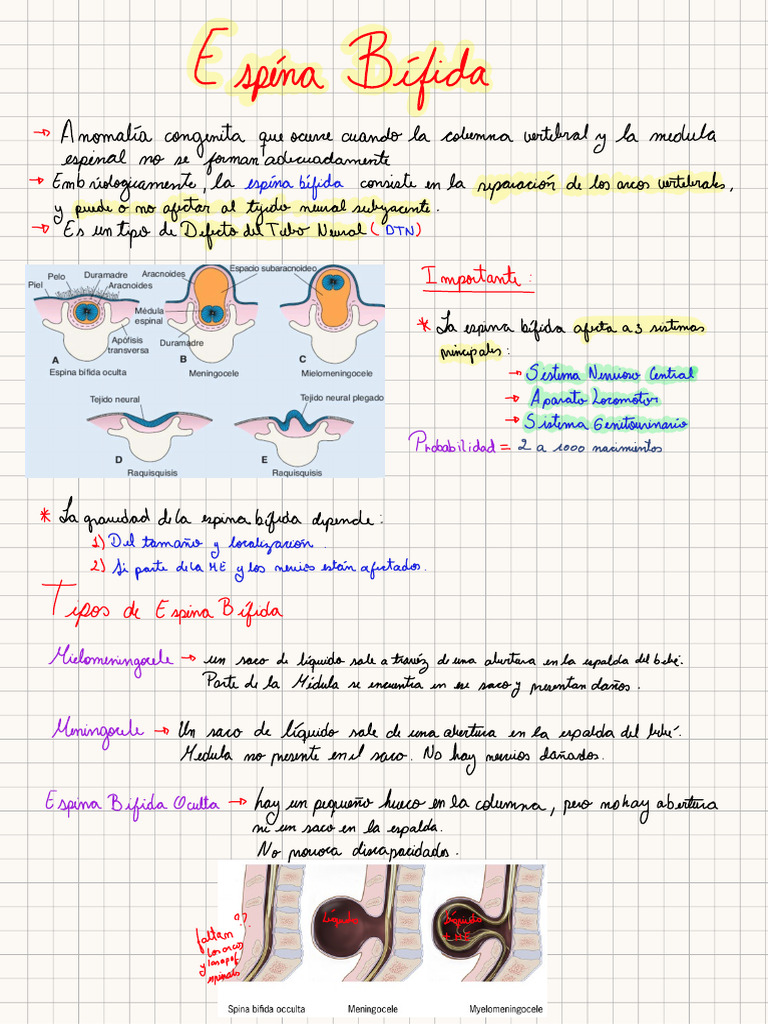 Espina Bífida
→ Anomalía congenita que ocurre cuando la columna vertebral y la medula
espinal no se forman adecuadamente
→ Embriologicamente, la espina bífida consiste en la separación de los arcos vertebrales,
y puede o no afectar al tejido neural subyacente.
→ Es un tipo de Defecto del Tubo Neural (DTN)
Piel
Pelo
Duramadre
Aracnoides
Apófisis
transversa
A
Espina bífida oculta
Aracnoides
Espacio subaracnoideo
Médula
espinal
Duramadre
B
Meningocele
C
Mielomeningocele
Tejido neural
D
Raquisquisis
Tejido neural plegado
E
Raquisquisis
Importante:
* La espina bífida afecta a 3 sistemas
principales:
→ Sistema Nervioso Central
→ Aparato Locomotor
→ Sistema Genitourinario
Probabilidad = 2 a 1000 nacimientos
* La gravedad de la espina bífida depende:
1) Del tamaño y localización.
2) Si parte de la ME y los nervios están afectados.
Tipos de Espina Bífida
Mielomeningocele → un saco de líquido sale a travéz de una abertura en la espalda del bebé.
Parte de la Médula se encuentra en ese saco y presentan daños.
Meningocele → Un saco de líquido sale de una abertura en la espalda del bebé.
Medula no presente en el saco. No hay nervios dañados.
Espina Bifida Oculta → hay un pequeño hueco en la columna, pero no hay abertura
ni un saco en la espalda.
No provoca discapacidades.
??
faltan
los arcos
y las apóf
spinales
Líquido
Líquido
+ ME
Spina bifida occulta
Meningocele
Myelomeningocele